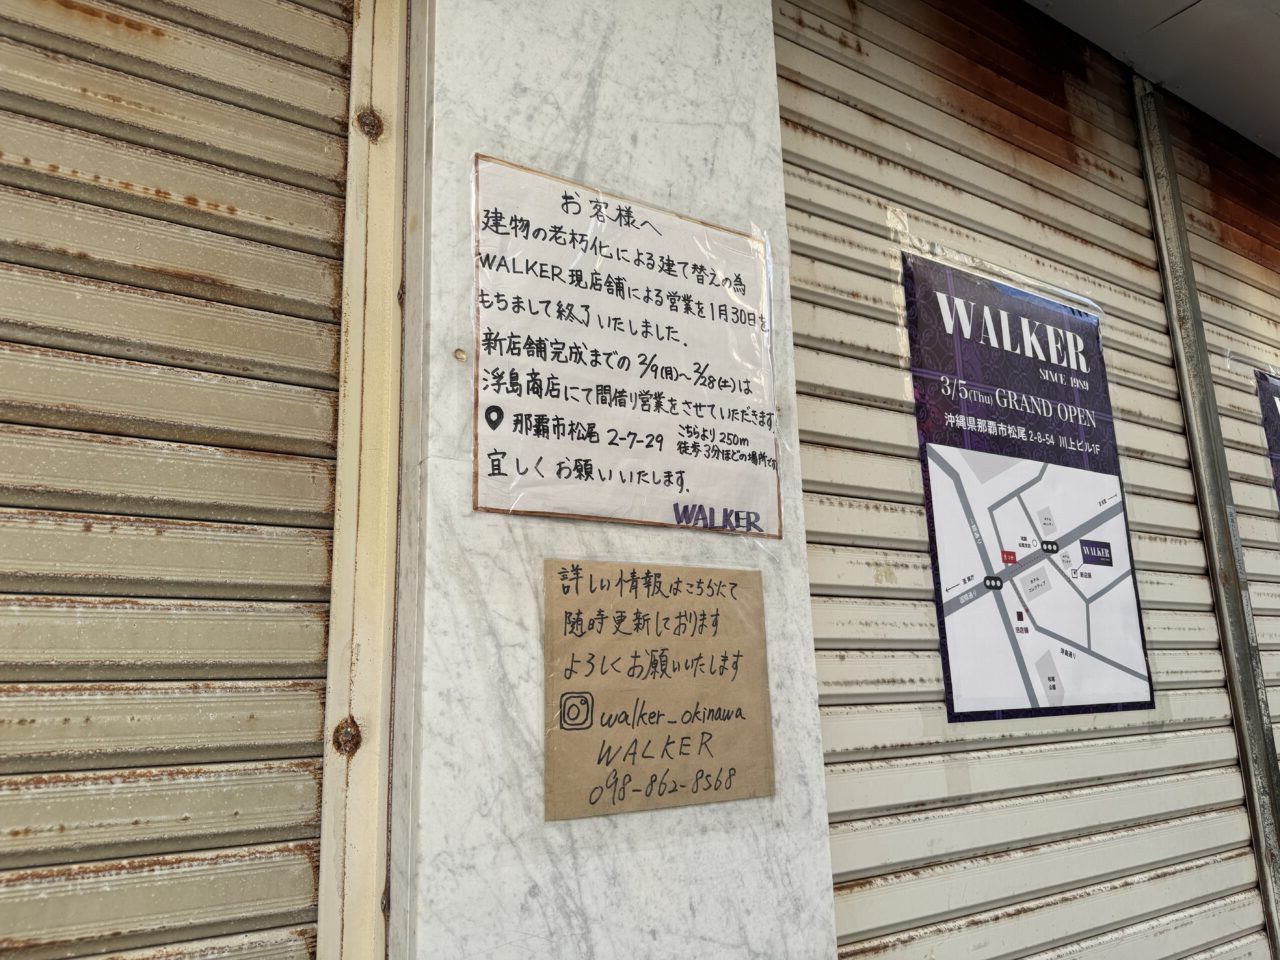 お客様へ
建物の老朽化による建て替えの為
WALKER現店舗による営業を1月30日を
もちまして終了いたしました.
新店舗完成までの 2/9(月)〜2/28(土)は
浮島商店にて間借り営業をさせていただきます
那覇市松尾 2-7-29
こちらより250m
徒歩3分ほどの場所です
宜しくお願いいたします.
WALKER
詳しい情報はこちらたて
随時更新しております
よろしくお願いいたします
walker_okinawa
WALKER
098-862-8568
WALKER
SINCE 1989
3/5(Thu) GRAND OPEN
沖縄県那覇市松尾 2-8-54 川上ビル1F
WALKER
新店舗
旧店舗
国際通り
浮島通り
松尾
公園